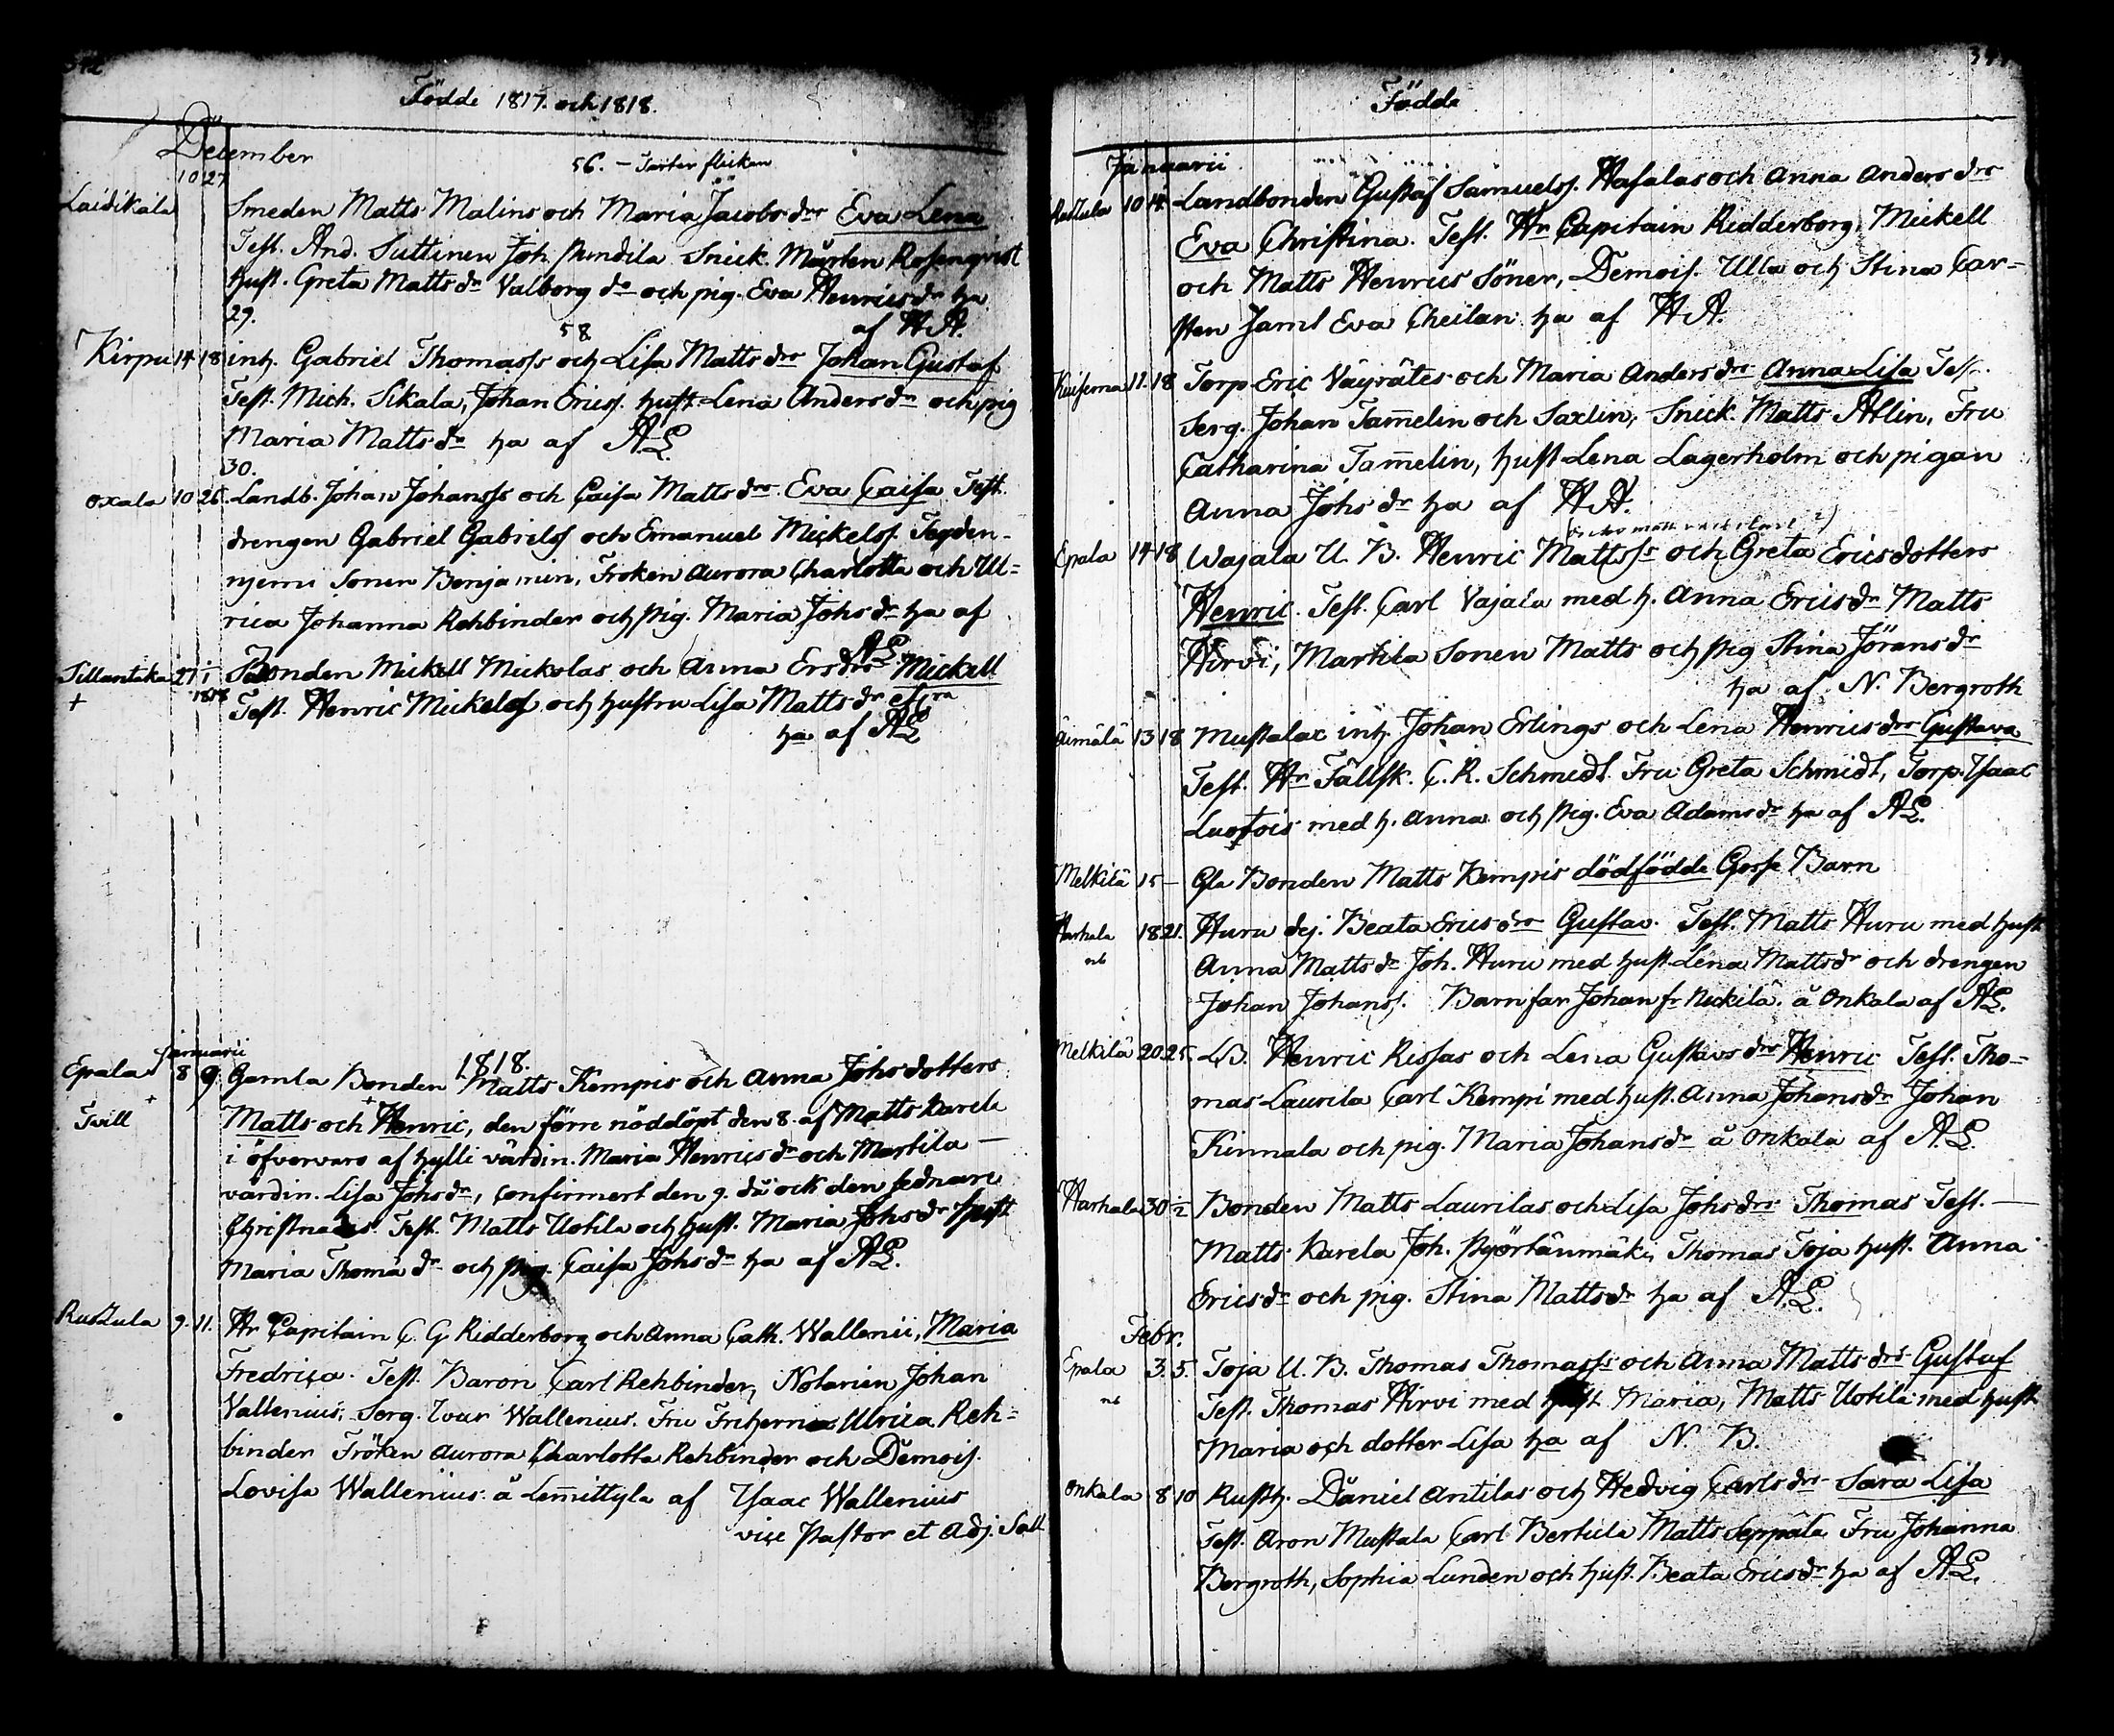 Födde 1817. och 1818.
December
56. – Tarter flickan
Laidikala 10 27 Smeden Matts Malins och Maria Jacobsdrs Eva Lena
Test. And. Suttinen Joh. Mundila Snick. Mårten Rosenqvist
hust. Greta Mattsdr Valborg do och pig. Eva Henricsdr ha
af HA.
29.
58
Kirpu 14 18 inh. Gabriel Thomass och Lisa Mattsdrs Johan Gustaf
Test. Mich. Sikala, Johan Ericss. hust. Lena Andersdr och pig
Maria Mattsdr ha af AL.
30.
Oxala 10 26 Landb. Johan Johanss och Caisa Mattsdrs Eva Caisa Test.
drengen Gabriel Gabrielss och Emanuel Mickelss. Tegden-
njemi Sonen Benjamin, Froken Aurora Charlotta och Ul-
rica Johanna Rehbinder och pig. Maria Johsdr ha af
AL
Tillantika 27 1 Bonden Mickell Mickolas och Anna Ersdrs Mickell
+ 1818 Test. Henric Mickelss och hustru Lisa Mattsdr
ha af AL
Januarii
1818.
Epala 8 9 Gamla Bonden Matts Kempis och Anna Johsdotters
+ Tvill Matts och Henric, den förre nöddöpt den 8. af Matts Karela
i öfvervaro af hylli värdin. Maria Henricsdr och Martila –
värdin. Lisa Johsdr, confirmert den 9. då ock den sednare
Christnades. Test. Matts Uotila och hust. Maria Johsdr hust
Maria Thomädr och pig. Caisa Johsdr ha af AL.
Rustula 9. 11. Hr Capitain C. G Ridderborg och Anna Cath. Wallenii, Maria
Fredrica. Test. Baron Carl Rehbinder, Notarien Johan
Vallenius, Serg. Ivar Wallenius. Fru Friherrin Ulrica Reh-
binder Fröken Aurora Charlotta Rehbinder och Demois.
Lovisa Wallenius. å Lem̄ittyla af Isaac Wallenius
vice Pastor et Adj. Sall
Födde
Januarii
Rustula 10 14 Landbonden Gustaf Samuelss. Hasalas och Anna Andersdrs
Eva Christina. Test. Hr Capitain Ridderborg, Mickell
och Matts Henrics Söner, Demois. Ulla och Stina Car-
sten samt Eva Cheilan ha af HA.
11. 18 Torp. Eric Väyrätes och Maria Andersdrs Anna Lisa Test.
Serg. Johan Tam̄elin och Saxlin, Snick. Matts Ahlin, Fru
Catharina Tam̄elin, hust. Lena Lagerholm och pigan
Anna Johsdr ha af HA.
Epala 14 18 Wajala U. B. Henric Mattss och Greta Ericsdotters
Henric. Test. Carl Vajala med h. Anna Ericsdr Matts
Hirvi, Martila Sonen Matts och pig Stina Jöransdr
ha af N. Bergroth
Äimälä 13 18 Mustalax inh. Johan Erlings och Lena Henricsdrs Gustava
Test. Hr Fältsk. C. R. Schmidt. Fru Greta Schmidt, Torp. Isaac
Luotois med h. Anna och pig. Eva Adamsdr ha af AL.
Melkilä 15 – Gla Bonden Matts Kempis dödfödde Gosse Barn
Harhala 18 21. Huru dej. Beata Ericsdrs Gustav. Test. Matts Huru med hust
Anna Mattsdr Joh. Huru med hust. Lena Mattsdr och drengen
Johan Johanss. Barnfar Johan fr Nickilä. å Onkala af AL.
Melkilä 20 25. LB. Henric Rissas och Lena Gustavsdrs Henric Test. Tho-
mas Laurila Carl Kempi med hust. Anna Johansdr Johan
Kinnala och pig. Maria Johansdr å Onkala af A.L.
Harhala 30 1/2 Bonden Matts Laurilas och Lisa Johsdrs Thomas Test. –
Matts Karela Joh. Pyörtänmäki, Thomas Toja hust. Anna
Ericsdr och pig. Stina Mattsdr ha af A.L.
Febr.
Epala 3. 5. Toja U. B. Thomas Thomass och Anna Mattsdrs Gustaf
Test. Thomas Hirvi med hust Maria, Matts Uotila med hust
Maria och dotter Lisa ha af N. B.
Onkala 8 10 Rusth. Daniel Antilas och Hedvig Carlsdrs Sara Lisa
Test. Aron Mustala Carl Bertula Matts Seppälä Fru Johanna
Bergroth, Sophia Lunden och hust. Beata Ericsdr ha af AL.